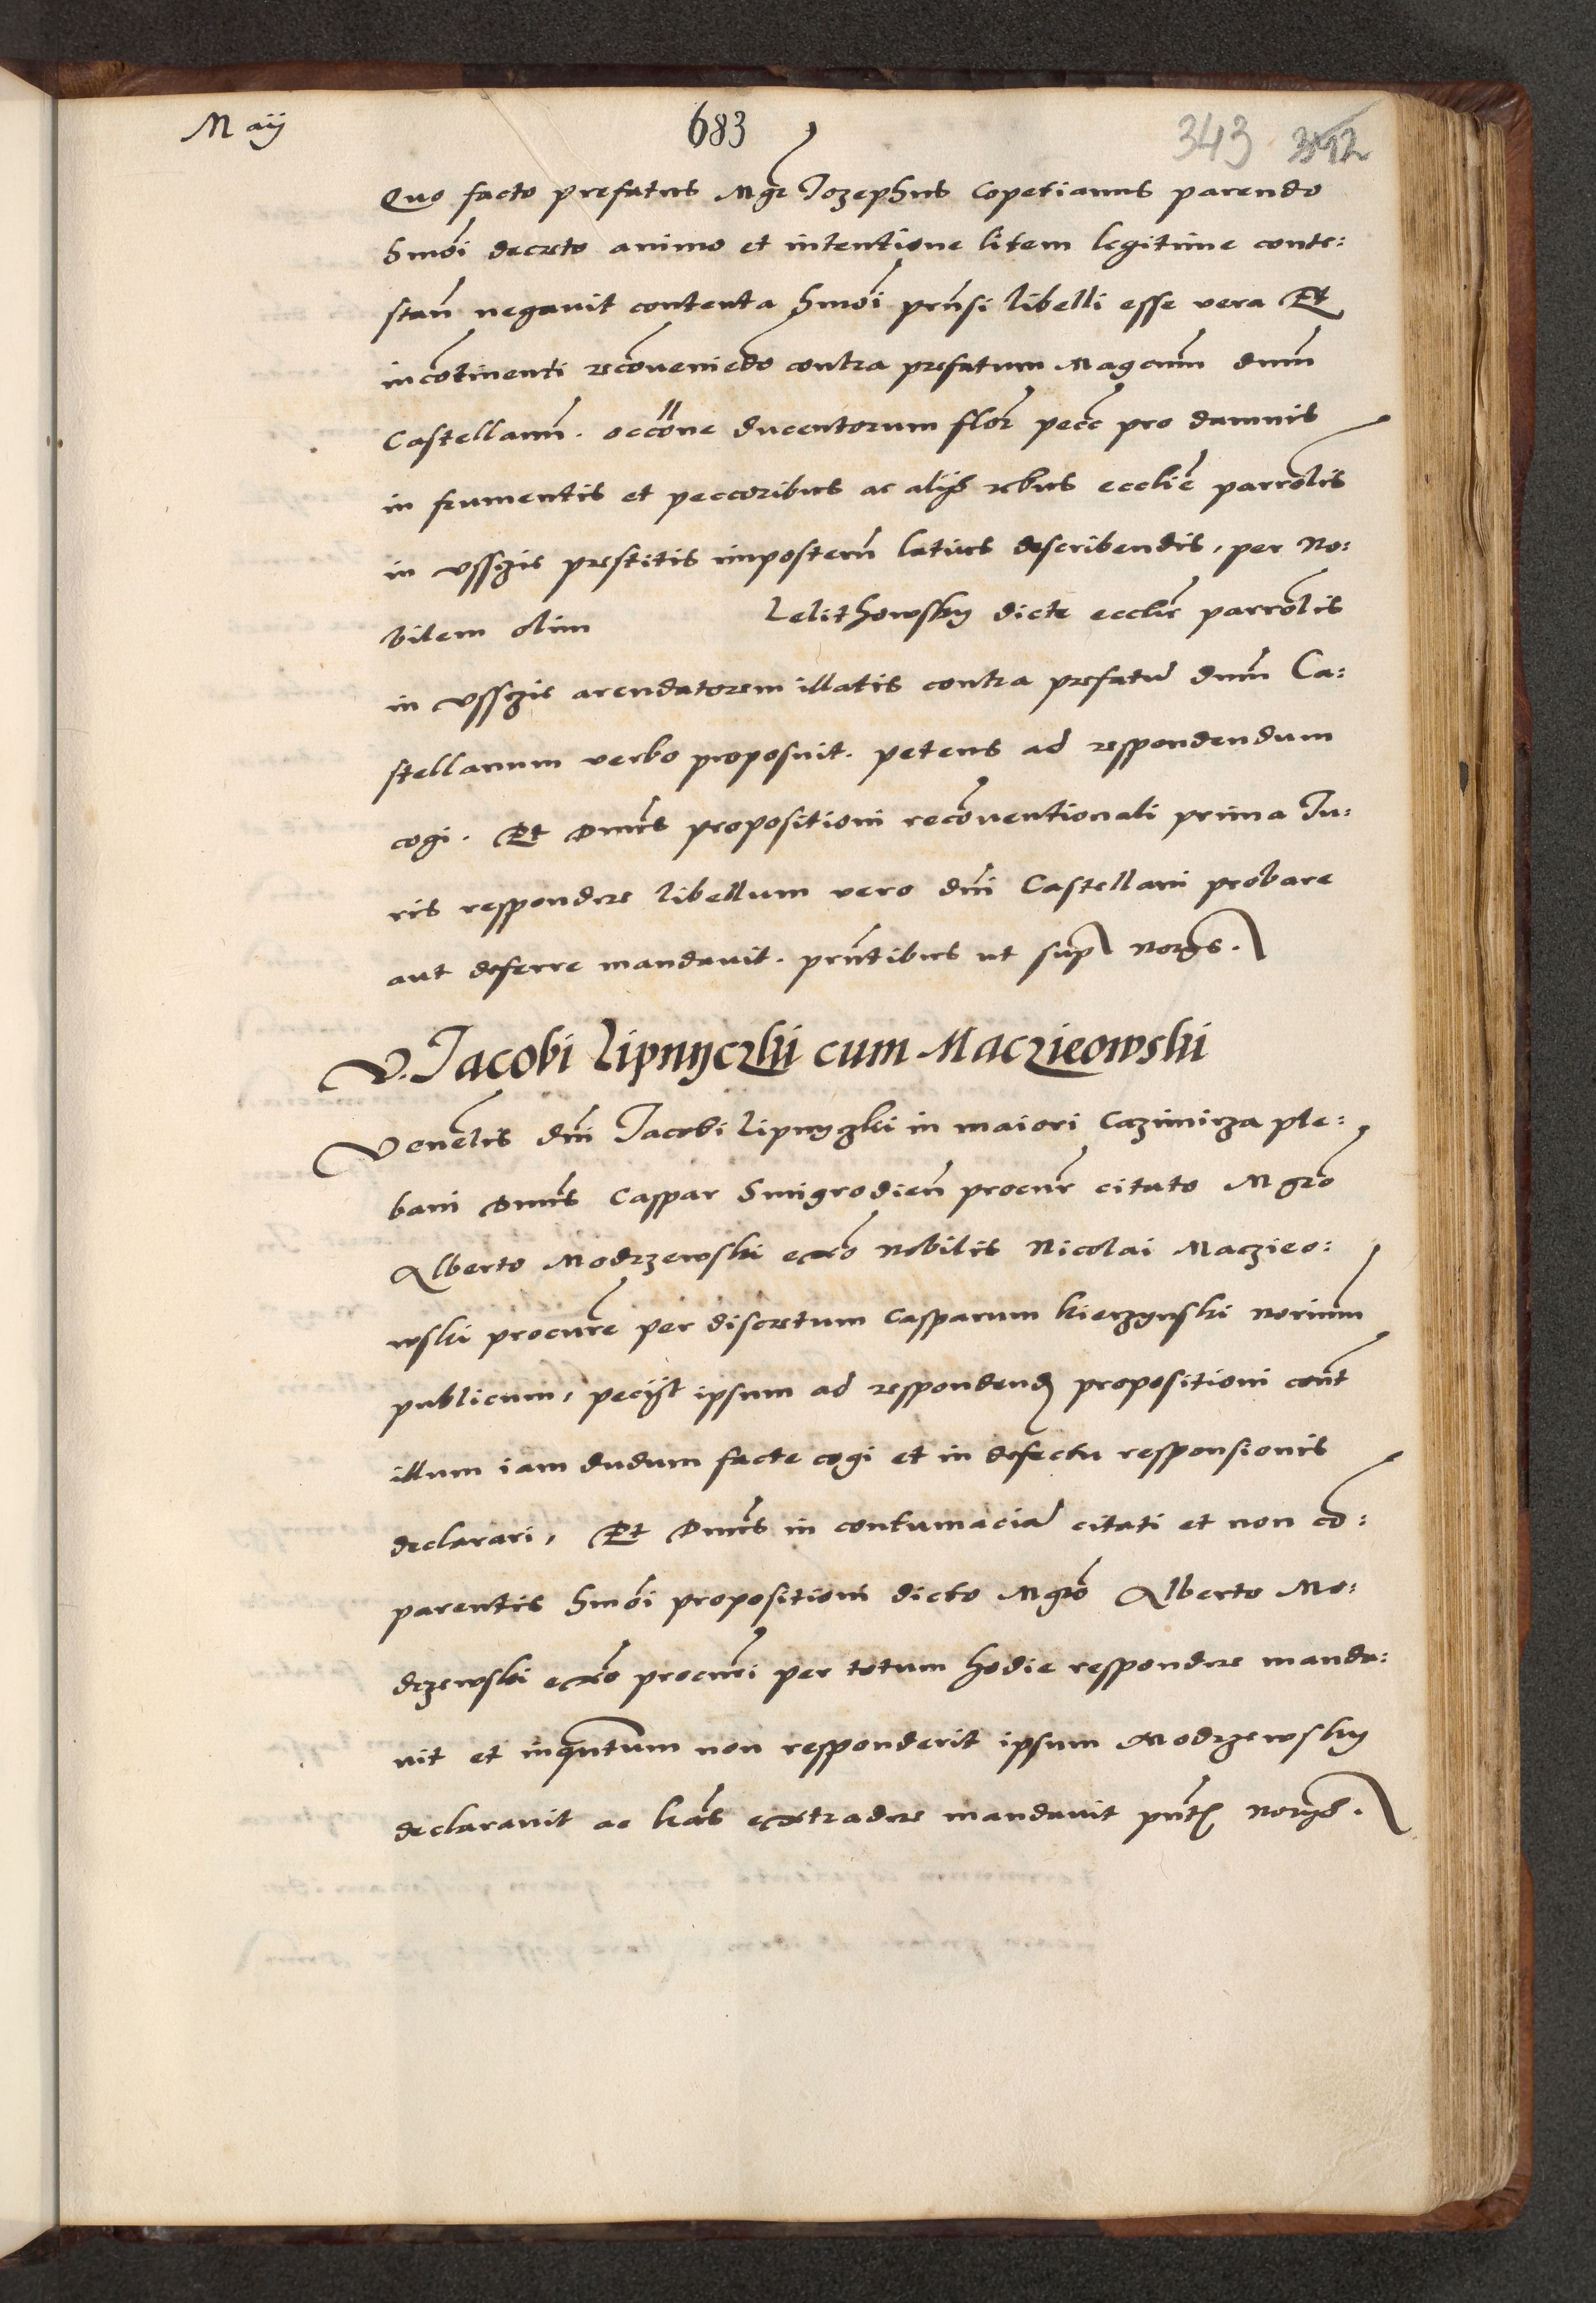 May
683
343 342
Quo facto prefatus Mgr Jozephus Copetianus parendo
hmoi decreto animo et intentione litem legitime conte:
stan negavit contenta hmoi prnsi libelli esse vera Et
incotinenti recoveniedo contra prefatum Magcum dnum
Castellanu. occone ducentorum flor pecc pro damnis
in frumentis et peccoribus ac alijs rebus ecclie parrolis
in Vssgie prestitis imposteru latius describendis, per No:
bilem olim Lelithowsky dicte ecclie parrolis
in Vssgie arendatorem illatis contra prefatu dnum Ca:
stellanum verbo proposuit. petens ad respondendum
cogi. Et Dnus propositioni recoventionali prima Iu:
ris respondere libellum vero dni Castellani probare
aut deferre mandavit. prntibus ut sup Norys.
V. Jacobi Lipnyczki cum Maczieowski
Venelis dni Jacobi Lipnyzki in maiori Cazimirza ple:
bani Dnus Caspar Smigrodien procur citato Mgro
Alberto Modrzewski exo Nobilis Nicolai Maczieo:
wski procure per discretum Casparum Kierzynski Norium
publicum, pecijt ipsum ad respondend propositioni cont
illum iam dudum facte cogi et in defectu responsionis
declarari, Et Dnus in contumacia citati et non co:
parentis hmoi propositioni dicto Mgro Alberto Mo:
drzewski exo procuri per totum hodie respondere manda:
vit et inquntum non responderit ipsum Modrzewsky
declaravit ac lras extradere mandavit pnt Norys.